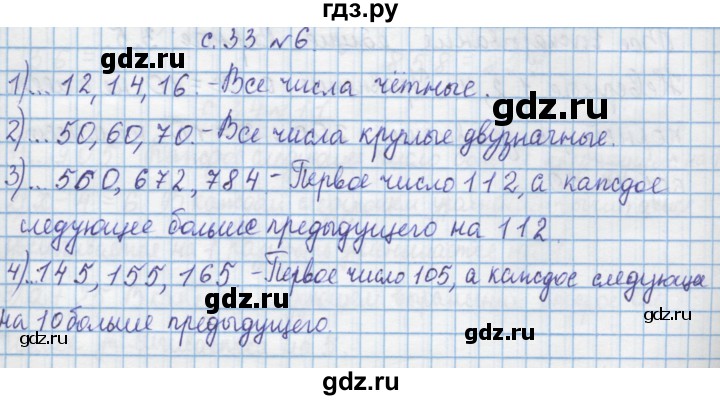 гдз.ру
с. 33 №6
gdz.ru gdz.ru
1)... 12, 14, 16. - Все числа чётные.
2)... 50, 60, 70. - Все числа круглые двузначные.
gdz.ru gdz.ru
3)... 560, 672, 784 - Первое число 112, а каждое
следующее больше предыдущего на 112.
gdz.ru gdz.ru
4)... 145, 155, 165 - Первое число 105, а каждое следующе
на 10 больше предыдущего.
gdz.ru gdz.ru
gdz.ru